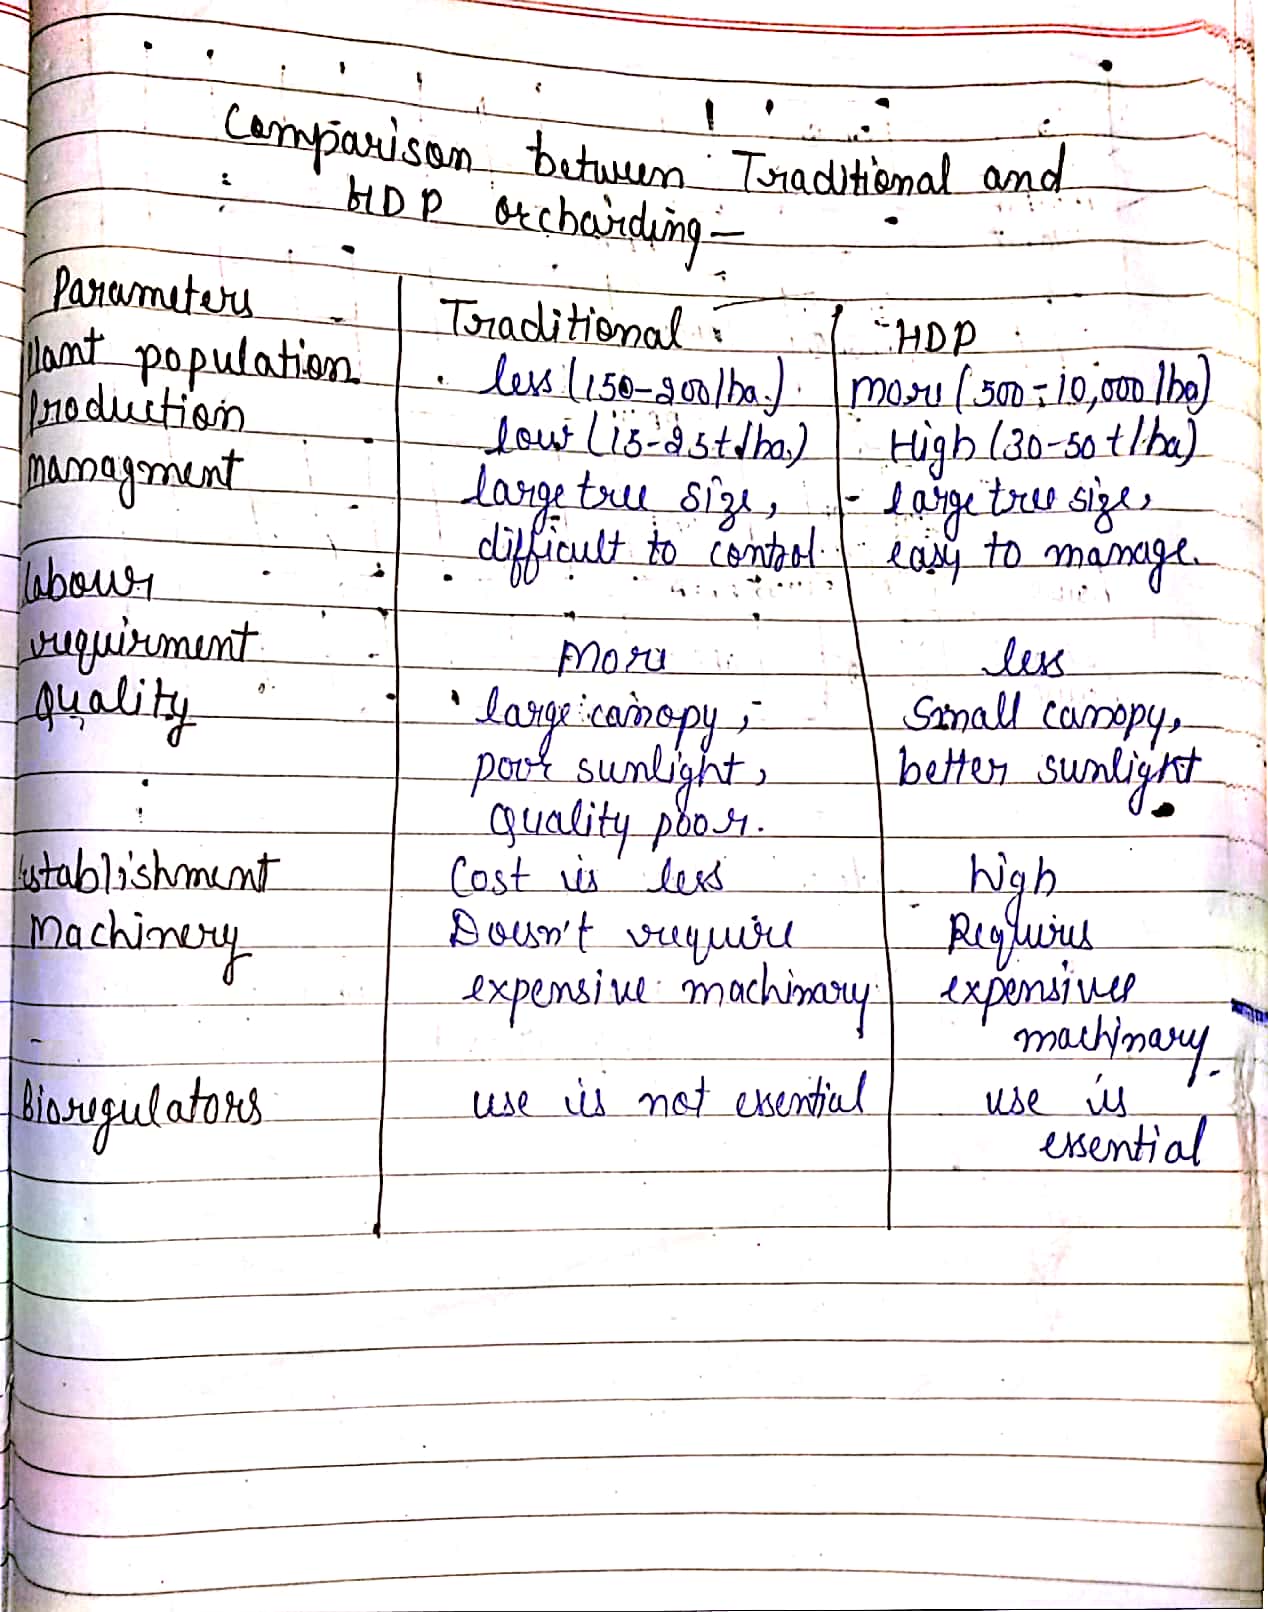 Comparison between Traditional and
HDP orcharding –
Parameters | Traditional | HDP
lant population | less (150-200/ha.) | more (500-10,000/ha)
Production | low (15-25t/ha.) | High (30-50 t/ha)
managment | large tree size, | large tree size,
difficult to control | easy to manage.
labour
requirment | more | less
quality | large canopy, | Small canopy,
poor sunlight, | better sunlight
quality poor.
establishment | Cost is less | high
Machinery | Doesn't require | Requires
expensive machinary | expensive
machinary.
Bioregulators | use is not essential | use is
essential